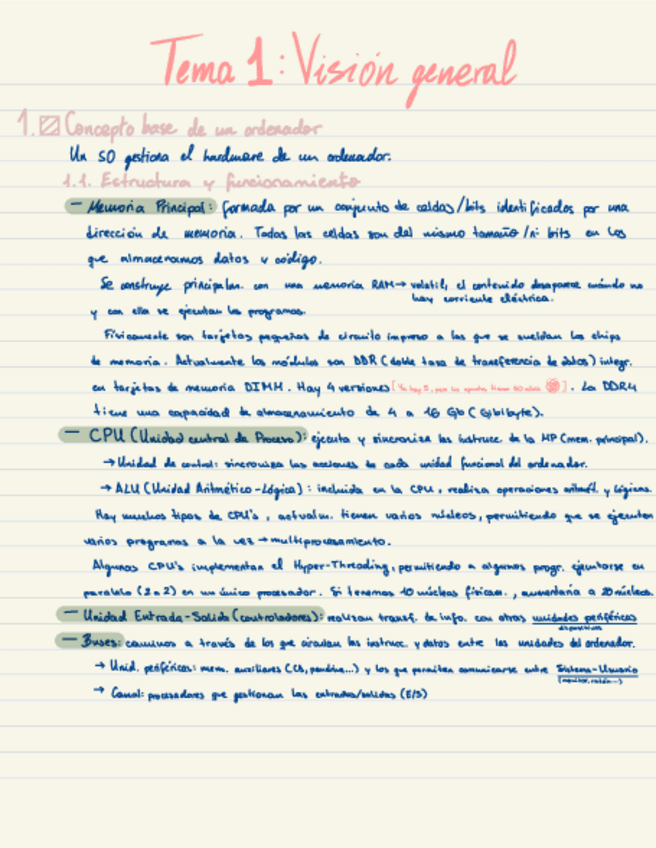 Tema 1: Visión general
1. Concepto base de un ordenador
Un SO gestiona el hardware de un ordenador.
1.1. Estructura y funcionamiento
— Memoria Principal: formada por un conjunto de celdas/bits identificados por una
dirección de memoria. Todas las celdas son del mismo tamaño/nº bits en los
que almacenamos datos y código.
Se construye principalm. con una memoria RAM → volatil, el contenido desaparece cuándo no
hay corriente eléctrica.
y con ella se ejecutan los programas.
Físicamente son tarjetas pequeñas de circuito impreso a las que se sueldan los chips
de memoria. Actualmente los módulos son DDR (doble tasa de transferencia de datos) integr.
en tarjetas de memoria DIMM. Hay 4 versiones [Ya hay 5, pero los apuntes tienen]. La DDR4
tiene una capacidad de almacenamiento de 4 a 16 Gb (Gibibyte).
— CPU (Unidad central de Proceso): ejecuta y sincroniza las instrucc. de la MP (mem. principal).
→ Unidad de control: sincroniza las acciones de cada unidad funcional del ordenador.
→ ALU (Unidad Aritmético-Lógica): incluida en la CPU, realiza operaciones aritmét. y lógicas.
Hay muchos tipos de CPU's, actualm. tienen varios núcleos, permitiendo que se ejecuten
varios programas a la vez → multiprocesamiento.
Algunos CPU's implementan el Hyper-Threading, permitiendo a algunos progr. ejecutarse en
paralelo (2 a 2) en un único procesador. Si tenemos 10 núcleos físicam., aumentaría a 20 núcleos.
— Unidad Entrada-Salida (controladores): realizan transf. de info. con otras unidades periféricas
dispositivos
— Buses: caminos a través de los que circulan las instrucc. y datos entre las unidades del ordenador.
→ Unid. periféricas: mem. auxiliares (CD, pendrive...) y los que permiten comunicarse entre Sistema-Usuario
(monitor, ratón...)
→ Canal: procesadores que gestionan las entradas/salidas (E/S)